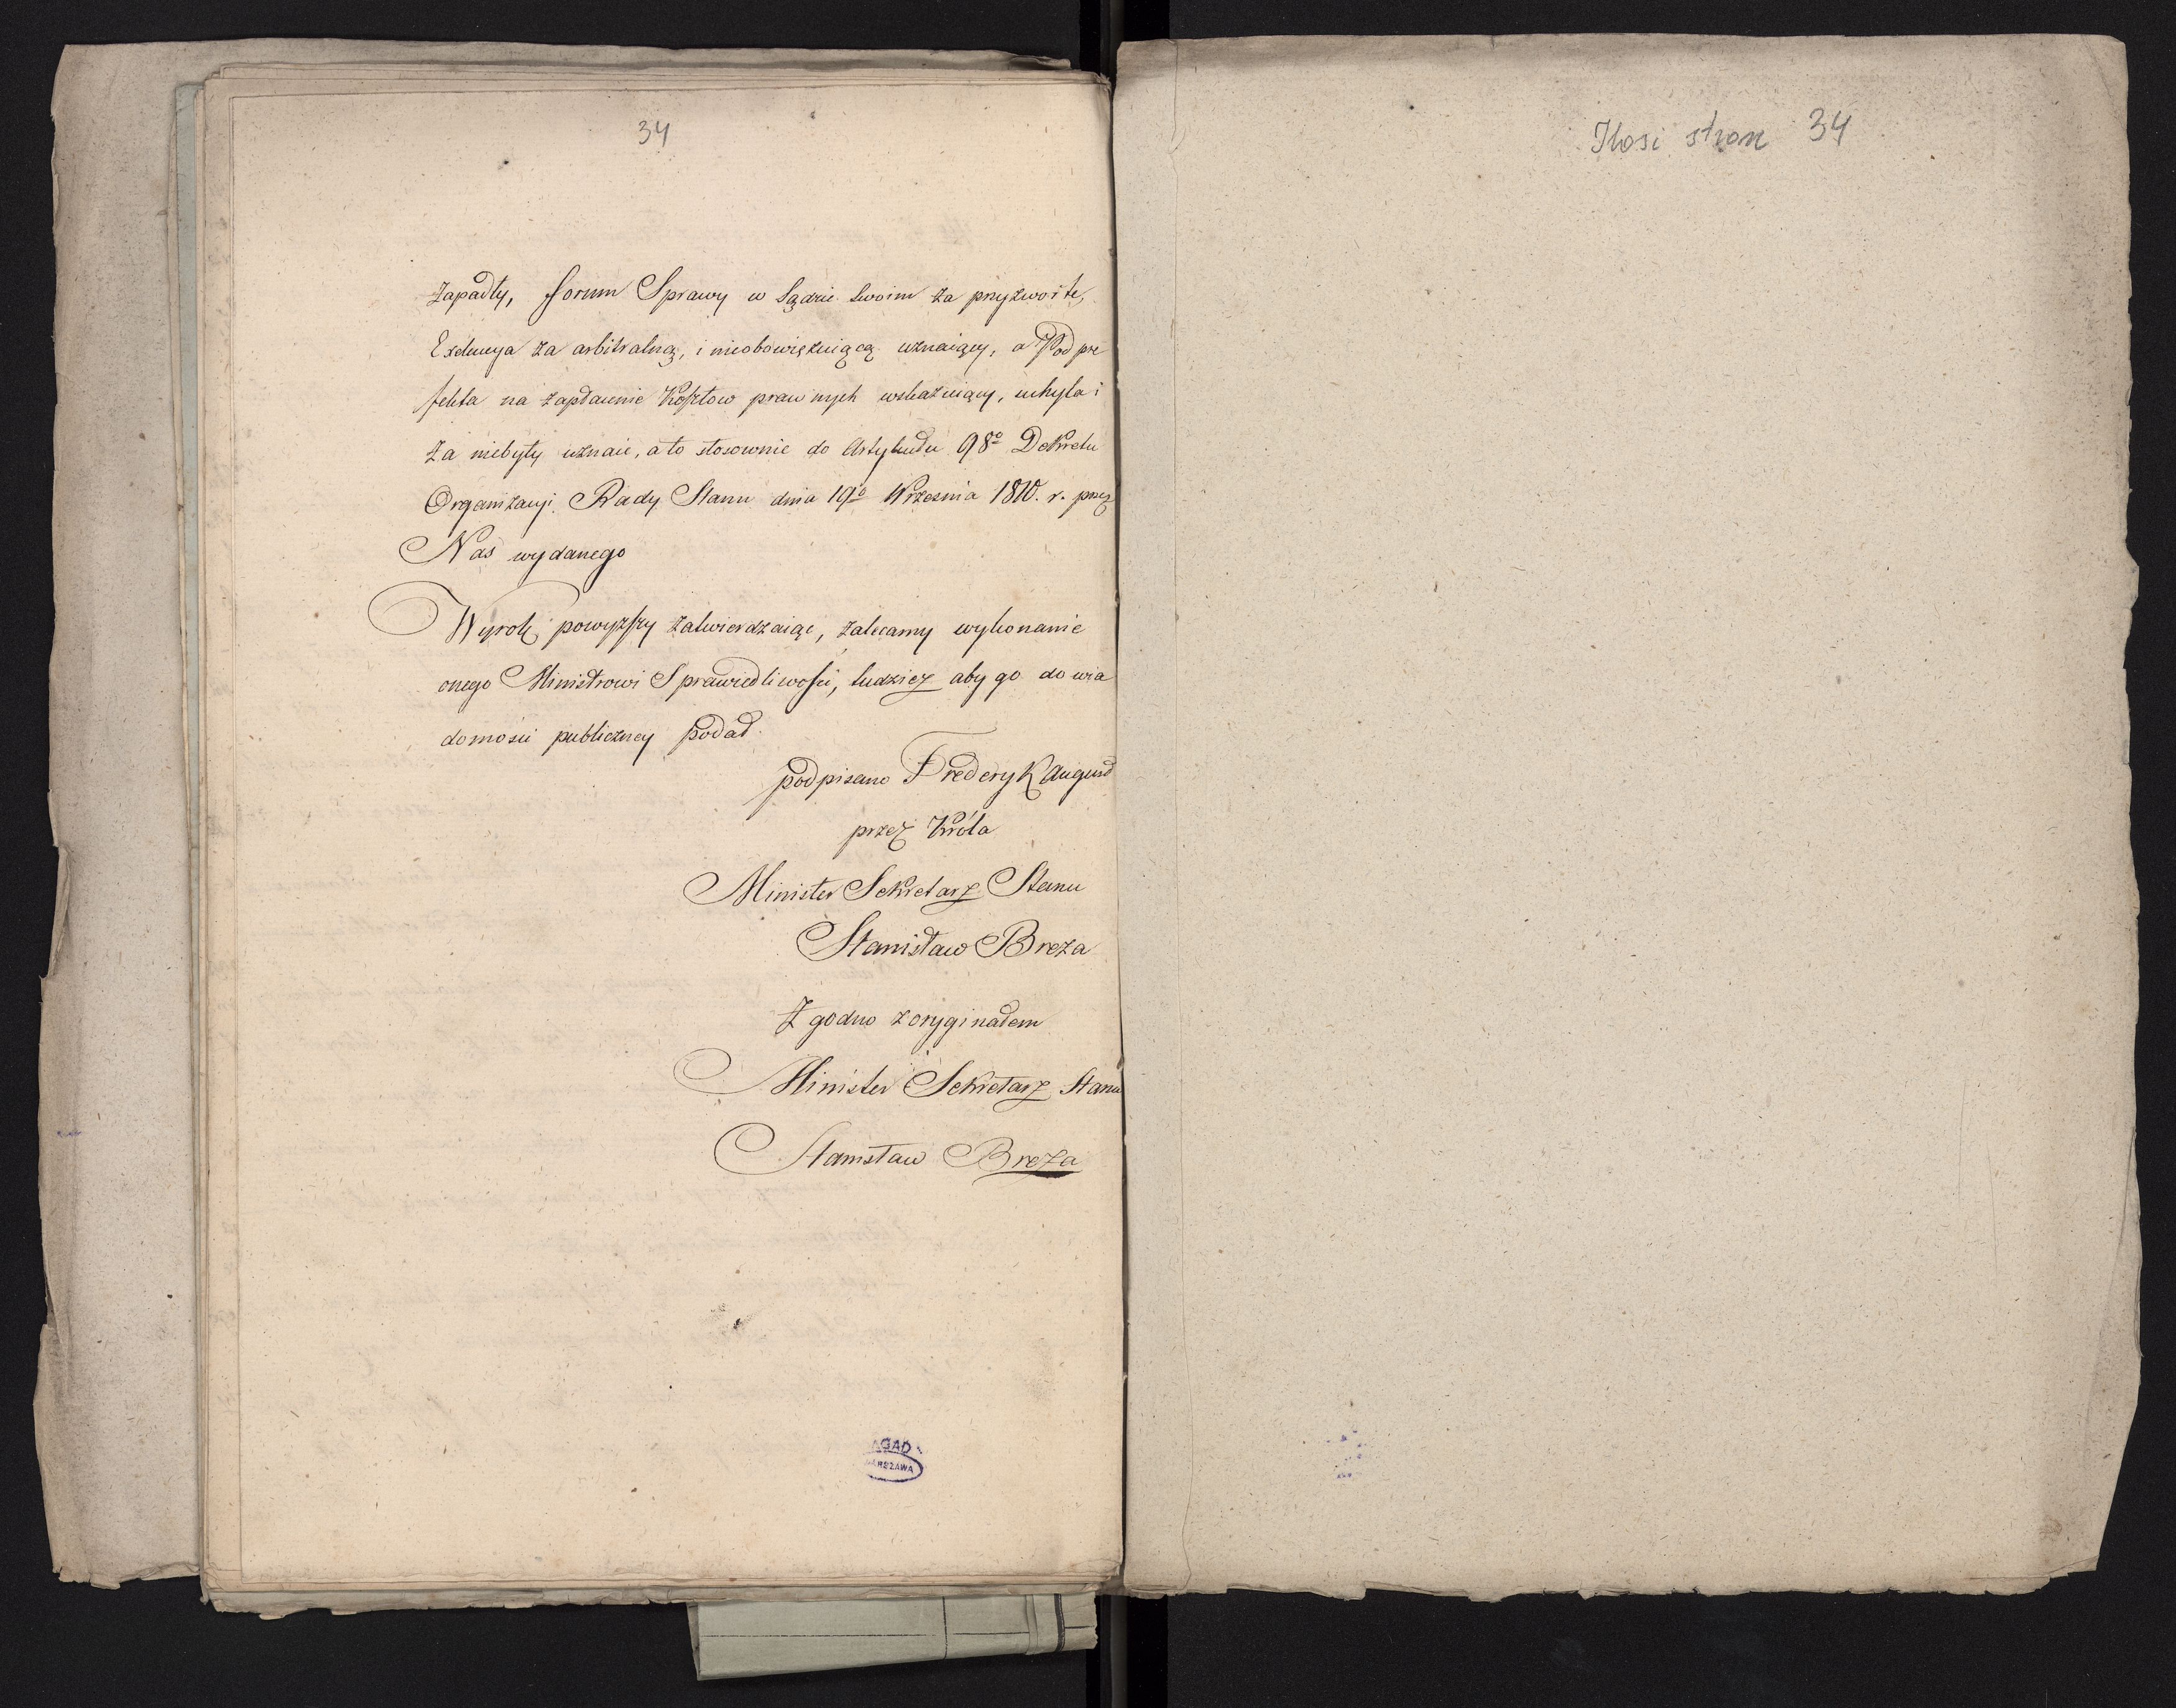 34
zapadły, forum Sprawy w Sądzie swoim za przyzwoite,
Exekucya za arbitralną, i nieobowięzuiącą uznaiący, a Podpre
fekta na zapłacenie Kosztow prawnych wskazuiący, uchyla i
za niebyły uznaie, a to stosownie do Artykułu 98º Dekretu
Organizacyi Rady Stanu dnia 19º Września 1810. r. przez
Nas wydanego
Wyrok powyższy zatwierdzaiąc, zalecamy wykonanie
onego Ministrowi Sprawiedliwości, tudzież aby go do wia
domości publiczney podał.
podpisano Frederyk August
przez Króla
Minister Sekretarz Stanu
Stanisław Breza
Zgodno z oryginałem
Minister Sekretarz Stanu
Stanisław Breza
AGAD
WARSZAWA
Ilość stron 34